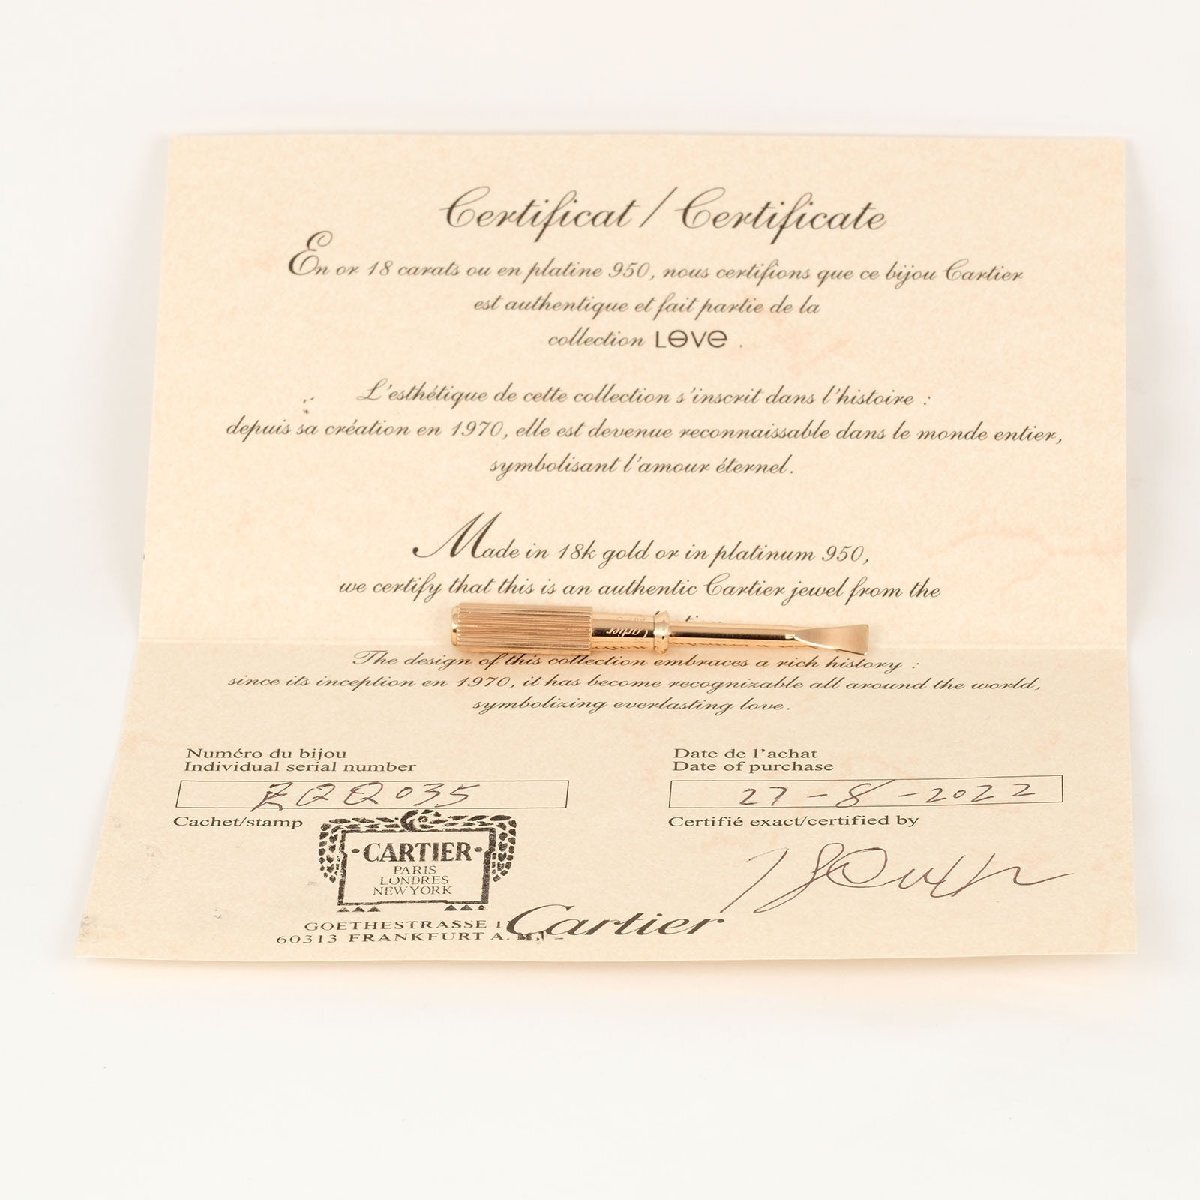 Certificat / Certificate
En or 18 carats ou en platine 950, nous certifions que ce bijou Cartier
est authentique et fait partie de la
collection LOVE .
L'esthétique de cette collection s'inscrit dans l'histoire :
depuis sa création en 1970, elle est devenue reconnaissable dans le monde entier,
symbolisant l'amour éternel.
Made in 18k gold or in platinum 950,
we certify that this is an authentic Cartier jewel from the
Cartier
The design of this collection embraces a rich history :
since its inception en 1970, it has become recognizable all around the world,
symbolizing everlasting love.
Numéro du bijou
Individual serial number
ZQQ035
Cachet/stamp
Date de l'achat
Date of purchase
27-8-2022
Certifié exact/certified by
CARTIER
PARIS
LONDRES
NEW YORK
GOETHESTRASSE
60313 FRANKFURT A.
Cartier